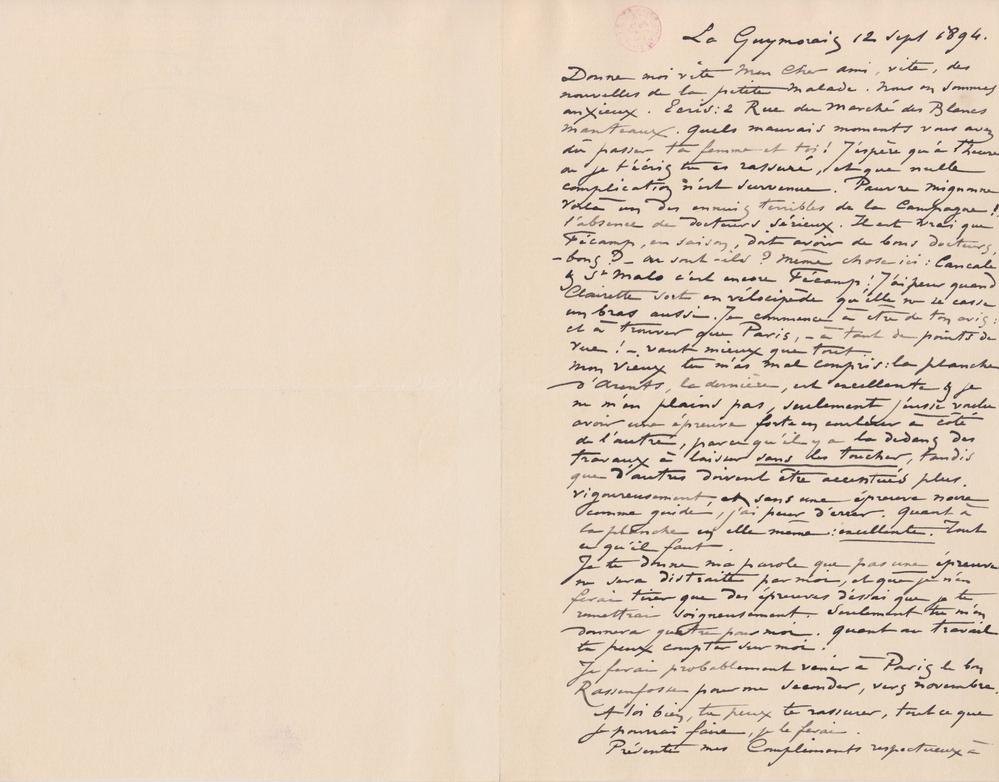 La Guymorais 12 Sept 1894.
Donne moi vite Mon Cher ami, vite, des
nouvelles de la petite malade. Nous en sommes
anxieux. Ecris: 2 Rue du Marché des Blancs
Manteaux. Quels mauvais moments vous avez
dû passer ta femme et toi! J'espère qu'à l'heure
où je t'écris tu es rassuré, et que nulle
complication n'est survenue. Pauvre mignonne
voilà un des ennuis terribles de la Campagne!!
l'absence de docteurs sérieux. Il est vrai que
Fécamp, en saison, doit avoir de bons docteurs,
- bons? - où sont-ils? Même chose ici: Cancale
& St Malo c'est encore Fécamp! J'ai peur quand
Clairette sort en vélocipède qu'elle ne se casse
un bras aussi. Je commence à être de ton avis:
et à trouver que Paris, - à tant de points de
vue! - vaut mieux que tout.
Mon vieux tu m'as mal compris: la planche
d', la dernière, est excellente & je
ne m'en plains pas, seulement j'eusse voulu
avoir une épreuve forte en couleur à côté
de l'autre, parce qu'il y a là dedans des
travaux à laisser sans les toucher, tandis
que d'autres doivent être accentués plus
vigoureusement, et sans une épreuve noire
comme guide, j'ai peur d'errer. Quant à
la planche en elle même: excellente. Tout
ce qu'il faut.
Je te donne ma parole que pas une épreuve
ne sera distraite par moi, et que je n'en
ferai tirer que des épreuves d'essai que je te
remettrai soigneusement. Seulement tu m'en
donnera quatre pour moi. Quant au travail
tu peux compter sur moi!
Je ferai probablement venir à Paris le bon
Rassenfosse pour me seconder, vers novembre.
A toi bien, tu peux te rassurer, tout ce que
je pourrai faire, je le ferai.
Présente mes Compliments respectueux à